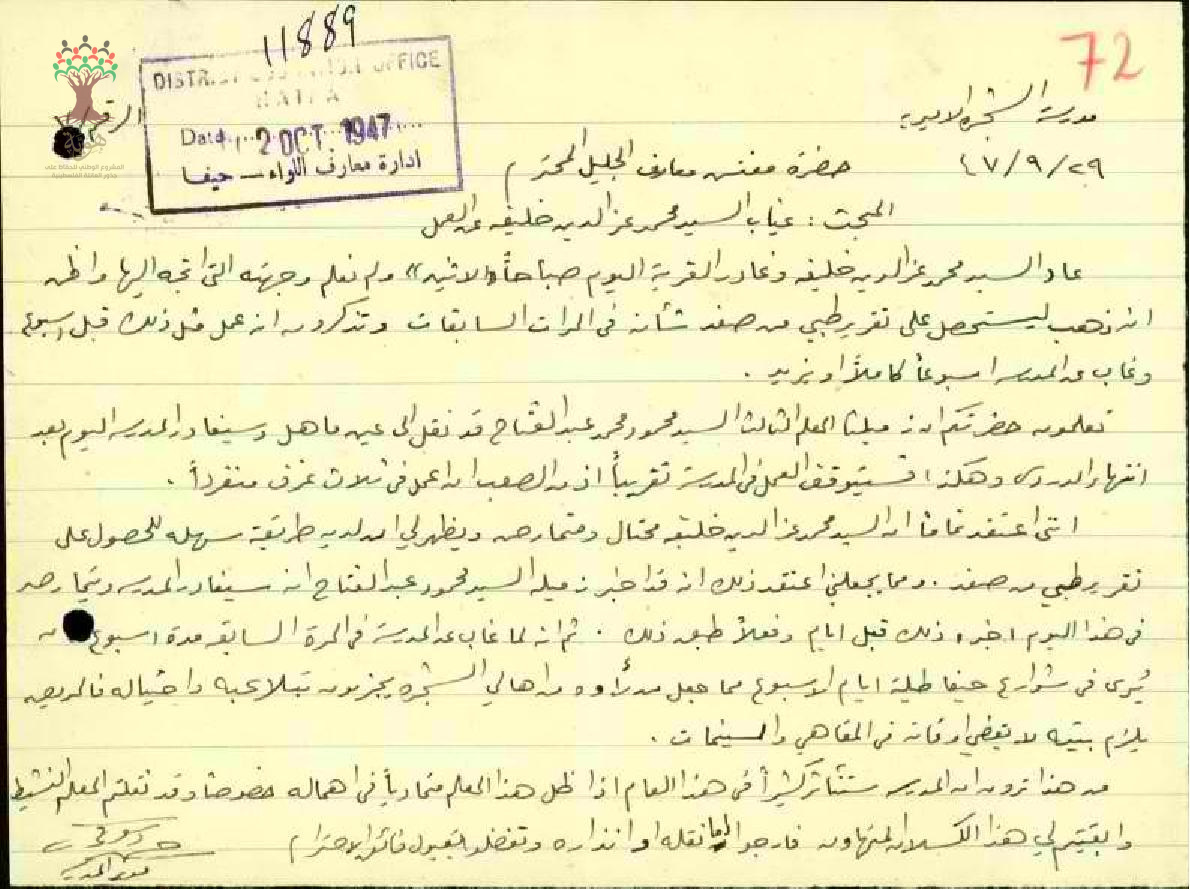 72
11889
DISTRICT OFFICE
HAIFA
Date 2 OCT. 1947
ادارة معارف اللواء – حيفا
الرقم
هوية
المشروع الوطني للحفاظ على
جذور العائلة الفلسطينية
مدرسة الشجره الاميرية
٤٧/٩/٢٩
حضرة مفتش معارف الجليل المحترم
المبحث : غياب السيد محمد عز الدين خليفه عن العمل
عاد السيد محمد عز الدين خليفه وغادر القرية اليوم صباحاً "الاثنين" ولم نعلم وجهته التي اتجه اليها واظن
انه ذهب ليستحصل على تقرير طبي من صفد شأنه في المرات السابقات وتذكرون انه عمل مثل ذلك قبل اسبوع
وغاب عن المدرسه اسبوعاً كاملاً او يزيد .
تعلمون حضرتكم ان زميلنا المعلم الثالث السيد محمود محمد عبد الفتاح قد نقل الى عين ماهل وسيغادر المدرسه اليوم بعد
انتهاء الدروس وهكذا فسيتوقف العمل في المدرسة تقريباً اذ من الصعب ان اعمل في ثلاث غرف منفرداً .
انني اعتقد تماماً ان السيد محمد عز الدين خليفه محتال ومتمارض ويظهر لي ان لديه طريقة سهله للحصول على
تقرير طبي من صفد . ومما يجعلني اعتقد ذلك انه قد اخبر زميله السيد محمود عبد الفتاح انه سيغادر المدرسه ويتمارض
في هذا اليوم اخبره ذلك قبل ايام وفعلاً طبق ذلك . ثم انه لما غاب عن المدرسة في المرة السابقه مدة اسبوع
يُرى في شوارع حيفا طيلة ايام الاسبوع مما جعل من رأوه من اهالي الشجره يجزمون بتلاعبه واحتياله فالمريض
يلزم بيته لا يقضي اوقاته في المقاهي والسينمات .
من هذا ترون ان المدرسه ستتأثر كثيراً في هذا العام اذا ظل هذا المعلم متمادياً في اهماله خصوصاً وقد نقلتم المعلم النشيط
وابقيتم لي هذا الكسلان المتهاون فارجو اما نقله او انذاره وتفضلوا بقبول فائق الاحترام